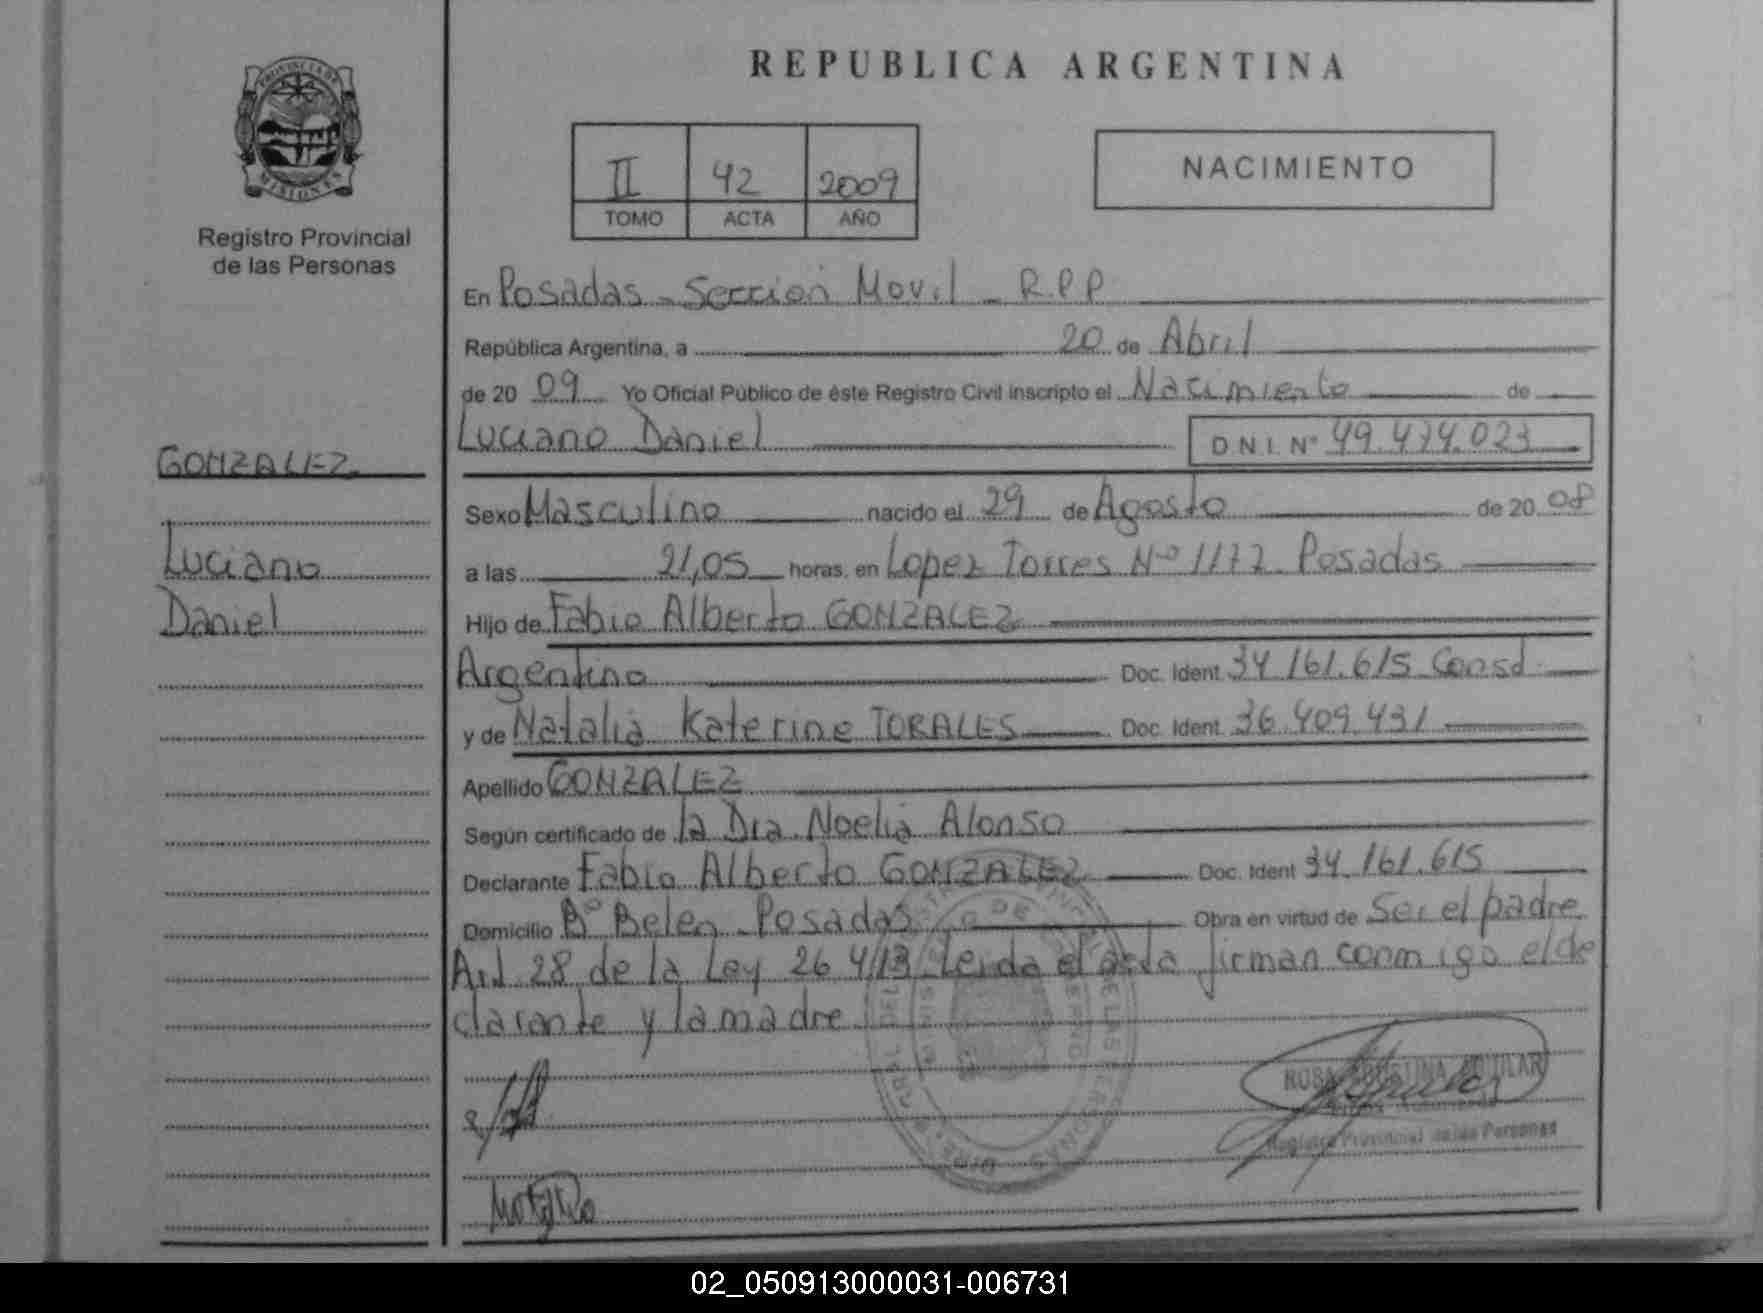 PROVINCIA DE
MISIONES
Registro Provincial
de las Personas
GONZALEZ
Luciano
Daniel
REPUBLICA ARGENTINA
II 42 2009
TOMO ACTA AÑO
NACIMIENTO
En Posadas - Sección Movil - R.P.P.
República Argentina, a 20 de Abril
de 20 09 Yo Oficial Público de éste Registro Civil inscripto el Nacimiento de
Luciano Daniel D.N.I. Nº 49.474.023
Sexo Masculino nacido el 29 de Agosto de 20 08
a las 21,05 horas, en Lopez Torres Nº 1172 Posadas
Hijo de Fabio Alberto GONZALEZ
Argentino Doc. Ident. 34.161.615 Consd
y de Natalia Katerine TORALES Doc. Ident. 36.409.431
Apellido GONZALEZ
Según certificado de la Dra. Noelia Alonso
Declarante Fabio Alberto GONZALEZ Doc. Ident 34.161.615
Domicilio Bº Belen Posadas Obra en virtud de Ser el padre
Art 28 de la Ley 26.413 Leida el acta firman conmigo el de
clarante y la madre
ROSA AGUSTINA AGUILAR
Registro Provincial de las Personas
02_050913000031-006731